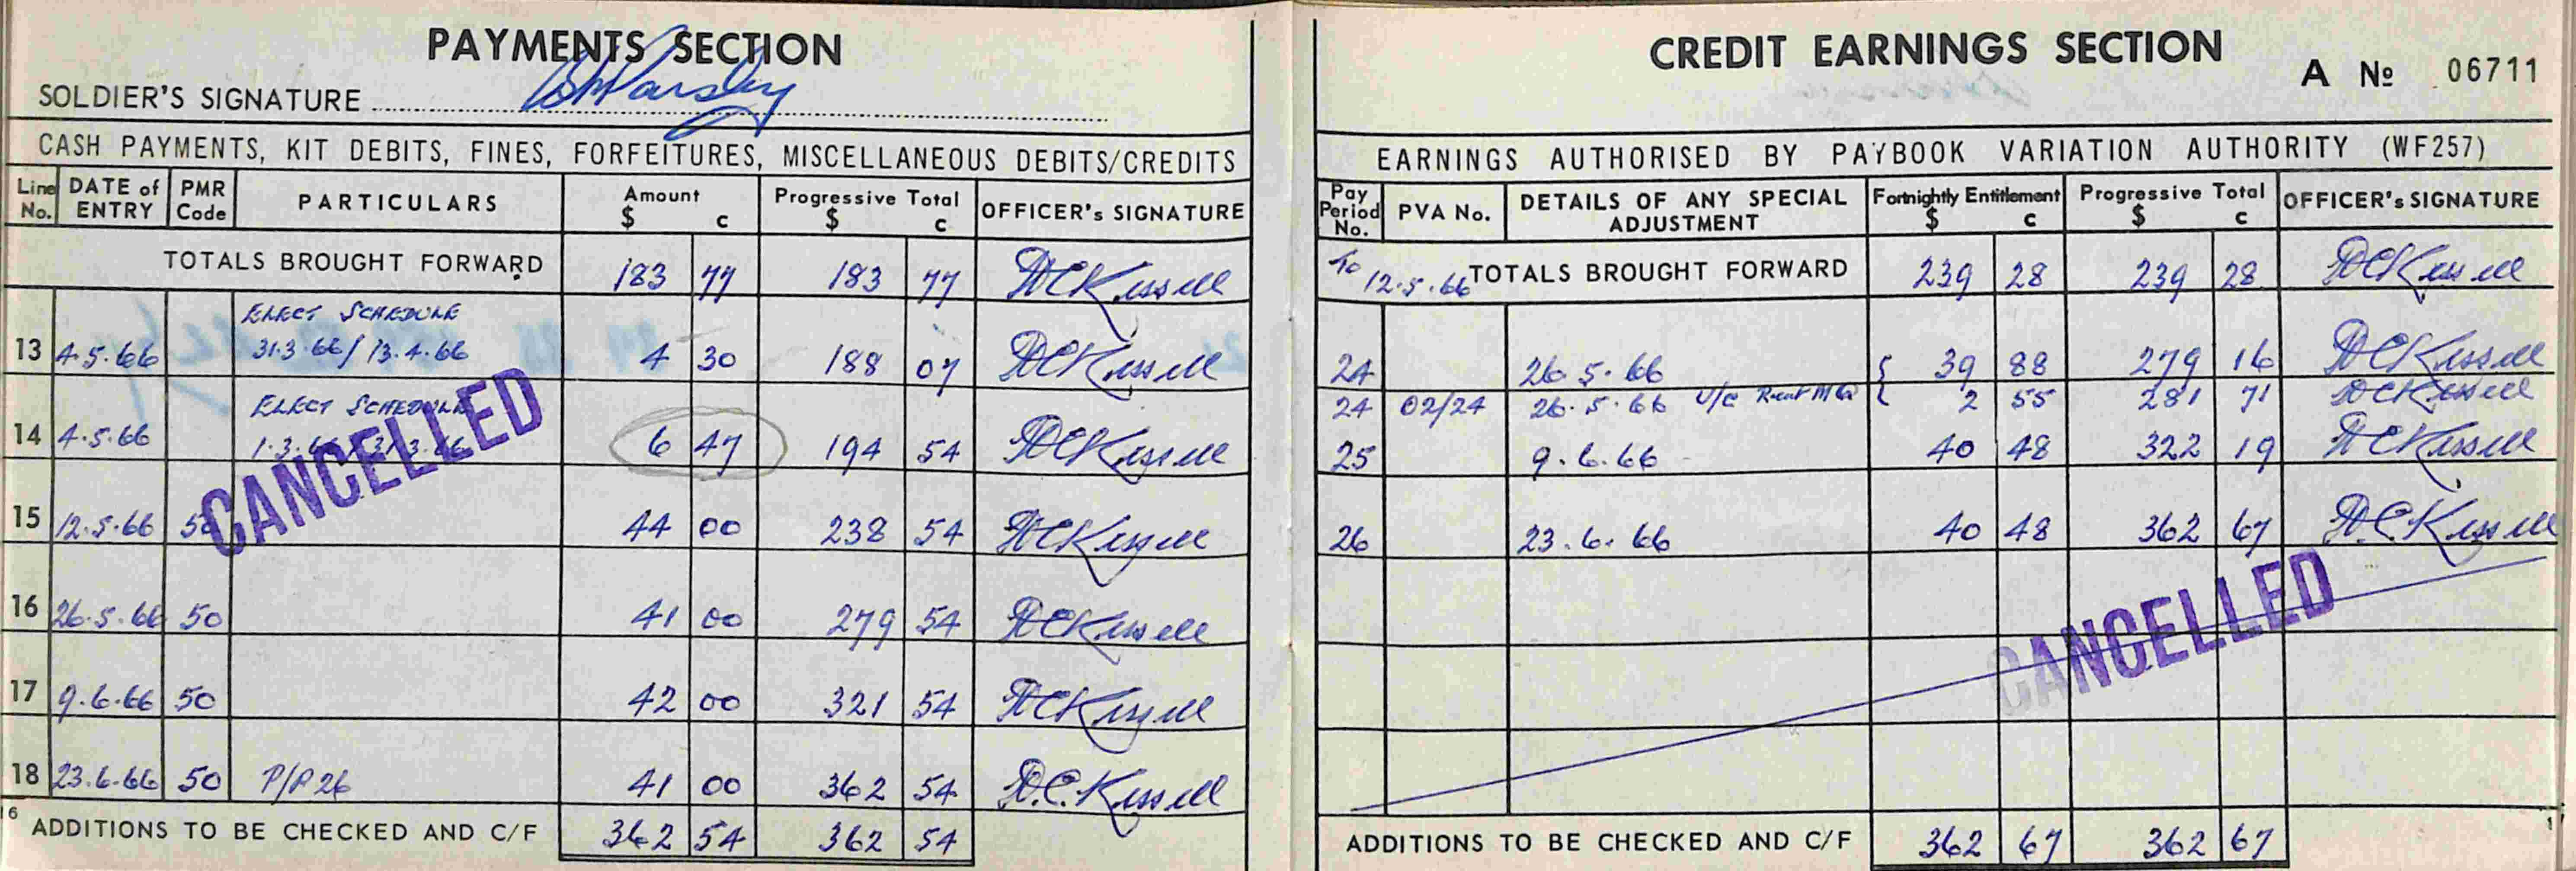 PAYMENTS SECTION
SOLDIER'S SIGNATURE
CASH PAYMENTS, KIT DEBITS, FINES, FORFEITURES, MISCELLANEOUS DEBITS/CREDITS
Line No. DATE of ENTRY PMR Code PARTICULARS Amount $ c Progressive Total $ c OFFICER's SIGNATURE
TOTALS BROUGHT FORWARD 183 77 183 77 DCKissell
ELECT SCHEDULE
13 4.5.66 31.3.66/13.4.66 4 30 188 07 DCKissell
ELECT SCHEDULE
14 4.5.66 1.3.6 31.3.66 6 47 194 54 DCKissell
CANCELLED
15 12.5.66 50 44 00 238 54 DCKissell
16 26.5.66 50 41 00 279 54 DCKissell
17 9.6.66 50 42 00 321 54 DCKissell
18 23.6.66 50 P/P 26 41 00 362 54 D.C.Kissell
16 ADDITIONS TO BE CHECKED AND C/F 362 54 362 54
CREDIT EARNINGS SECTION
A No 06711
EARNINGS AUTHORISED BY PAYBOOK VARIATION AUTHORITY (WF257)
Pay Period No. PVA No. DETAILS OF ANY SPECIAL ADJUSTMENT Fortnightly Entitlement $ c Progressive Total $ c OFFICER's SIGNATURE
To 12.5.66 TOTALS BROUGHT FORWARD 239 28 239 28 DCKissell
24 26.5.66 39 88 279 16 DCKissell
24 02/24 26.5.66 U/C Rent 2 55 281 71 DCKissell
25 9.6.66 40 48 322 19 DCKissell
26 23.6.66 40 48 362 67 D.C.Kissell
CANCELLED
ADDITIONS TO BE CHECKED AND C/F 362 67 362 67